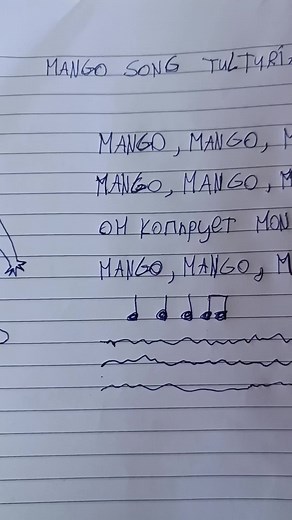 MANGO SONG TULTYRI
MANGO, MANGO, M
MANGO, MANGO, M
OH КОПАРУЕТ MON
MANGO, MANGO, M